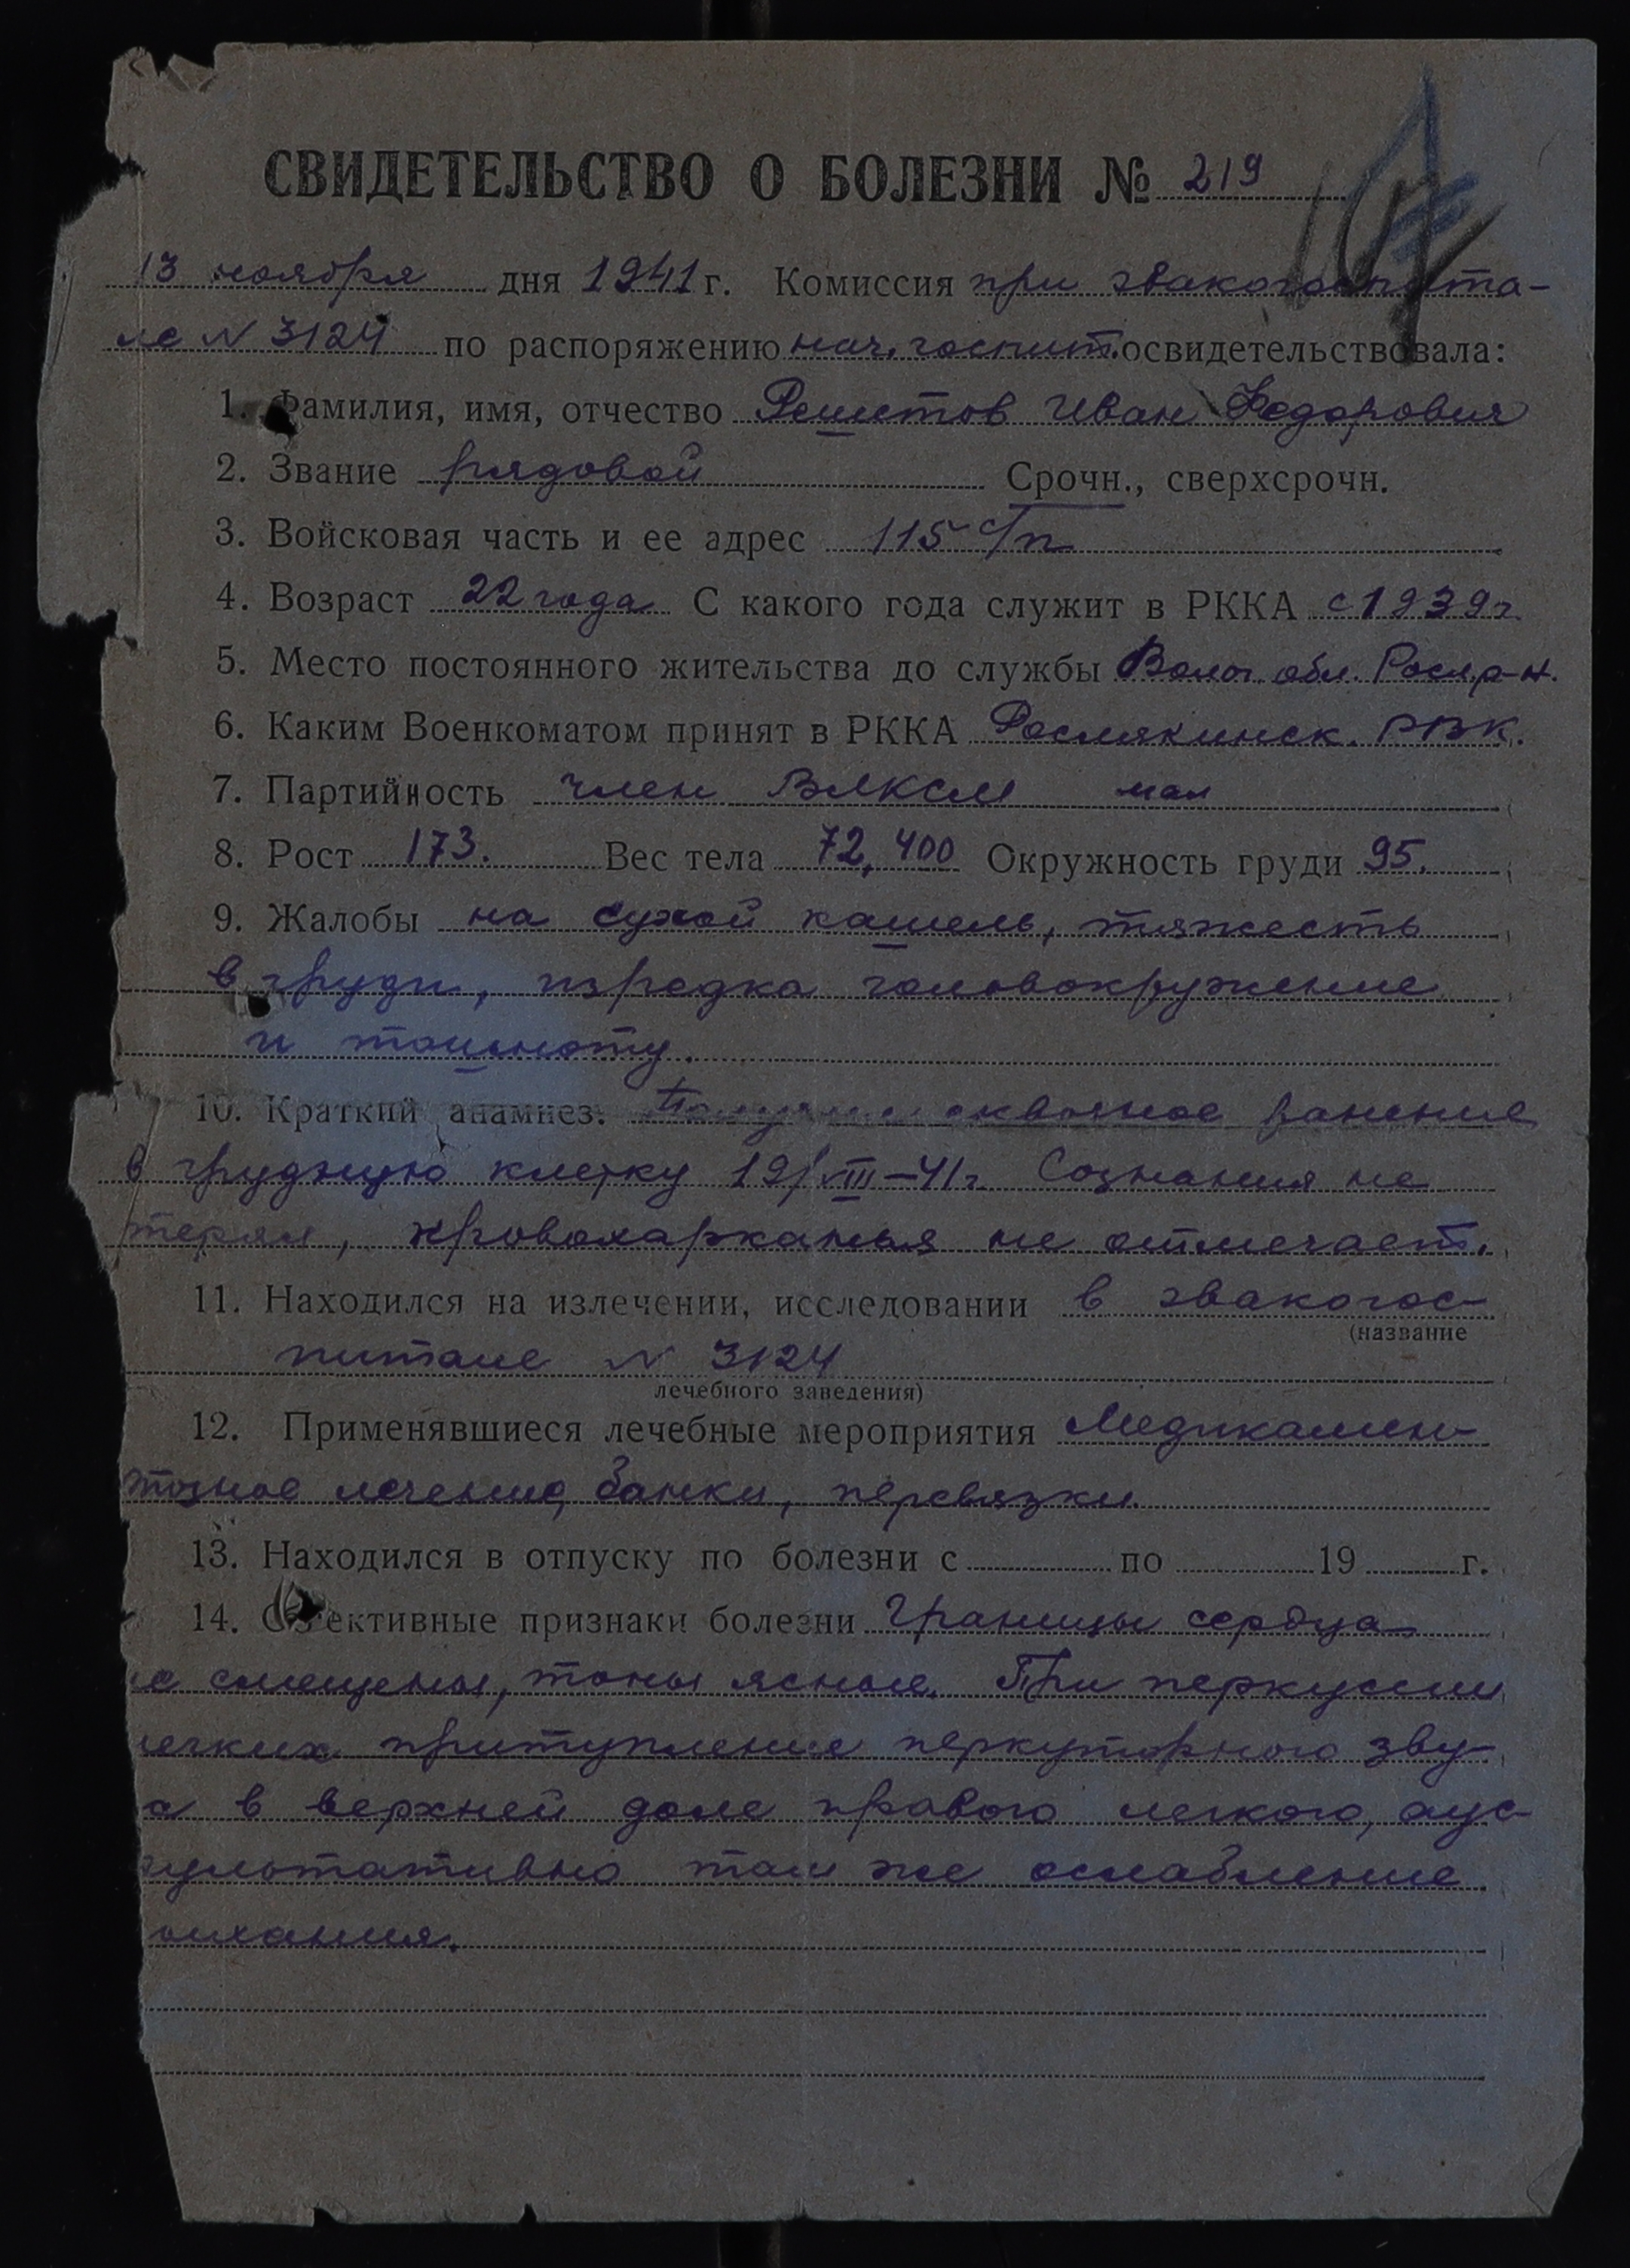 СВИДЕТЕЛЬСТВО О БОЛЕЗНИ № 219
13 ноября дня 1941 г. Комиссия при эвакогоспита-
ле N 3124 по распоряжению нач. госпит. освидетельствовала:
1. Фамилия, имя, отчество Решетов Иван Федорович
2. Звание рядовой Срочн., сверхсрочн.
3. Войсковая часть и ее адрес 115 с/п
4. Возраст 22 года С какого года служит в РККА с 1939 г.
5. Место постоянного жительства до службы Волог. обл. Росл. р-н.
6. Каким Военкоматом принят в РККА Рослякинск. РВК.
7. Партийность член ВЛКСМ
8. Рост 173. Вес тела 72,400 Окружность груди 95.
9. Жалобы на сухой кашель, тяжесть
в груди, изредка головокружение
и тошноту.
10. Краткий анамнез: Получил сквозное ранение
в грудную клетку 19/VIII-41 г. Сознания не
терял, кровохарканья не отмечает.
11. Находился на излечении, исследовании в эвакогос-
(название
питале N 3124
лечебного заведения)
12. Применявшиеся лечебные мероприятия Медикамен-
тозное лечение, банки, перевязки.
13. Находился в отпуску по болезни с по 19 г.
14. Объективные признаки болезни Границы сердца
не смещены, тоны ясные. При перкуссии
легких притупление перкуторного зву-
ка в верхней доле правого легкого, аус-
культативно там же ослабление
дыхания.